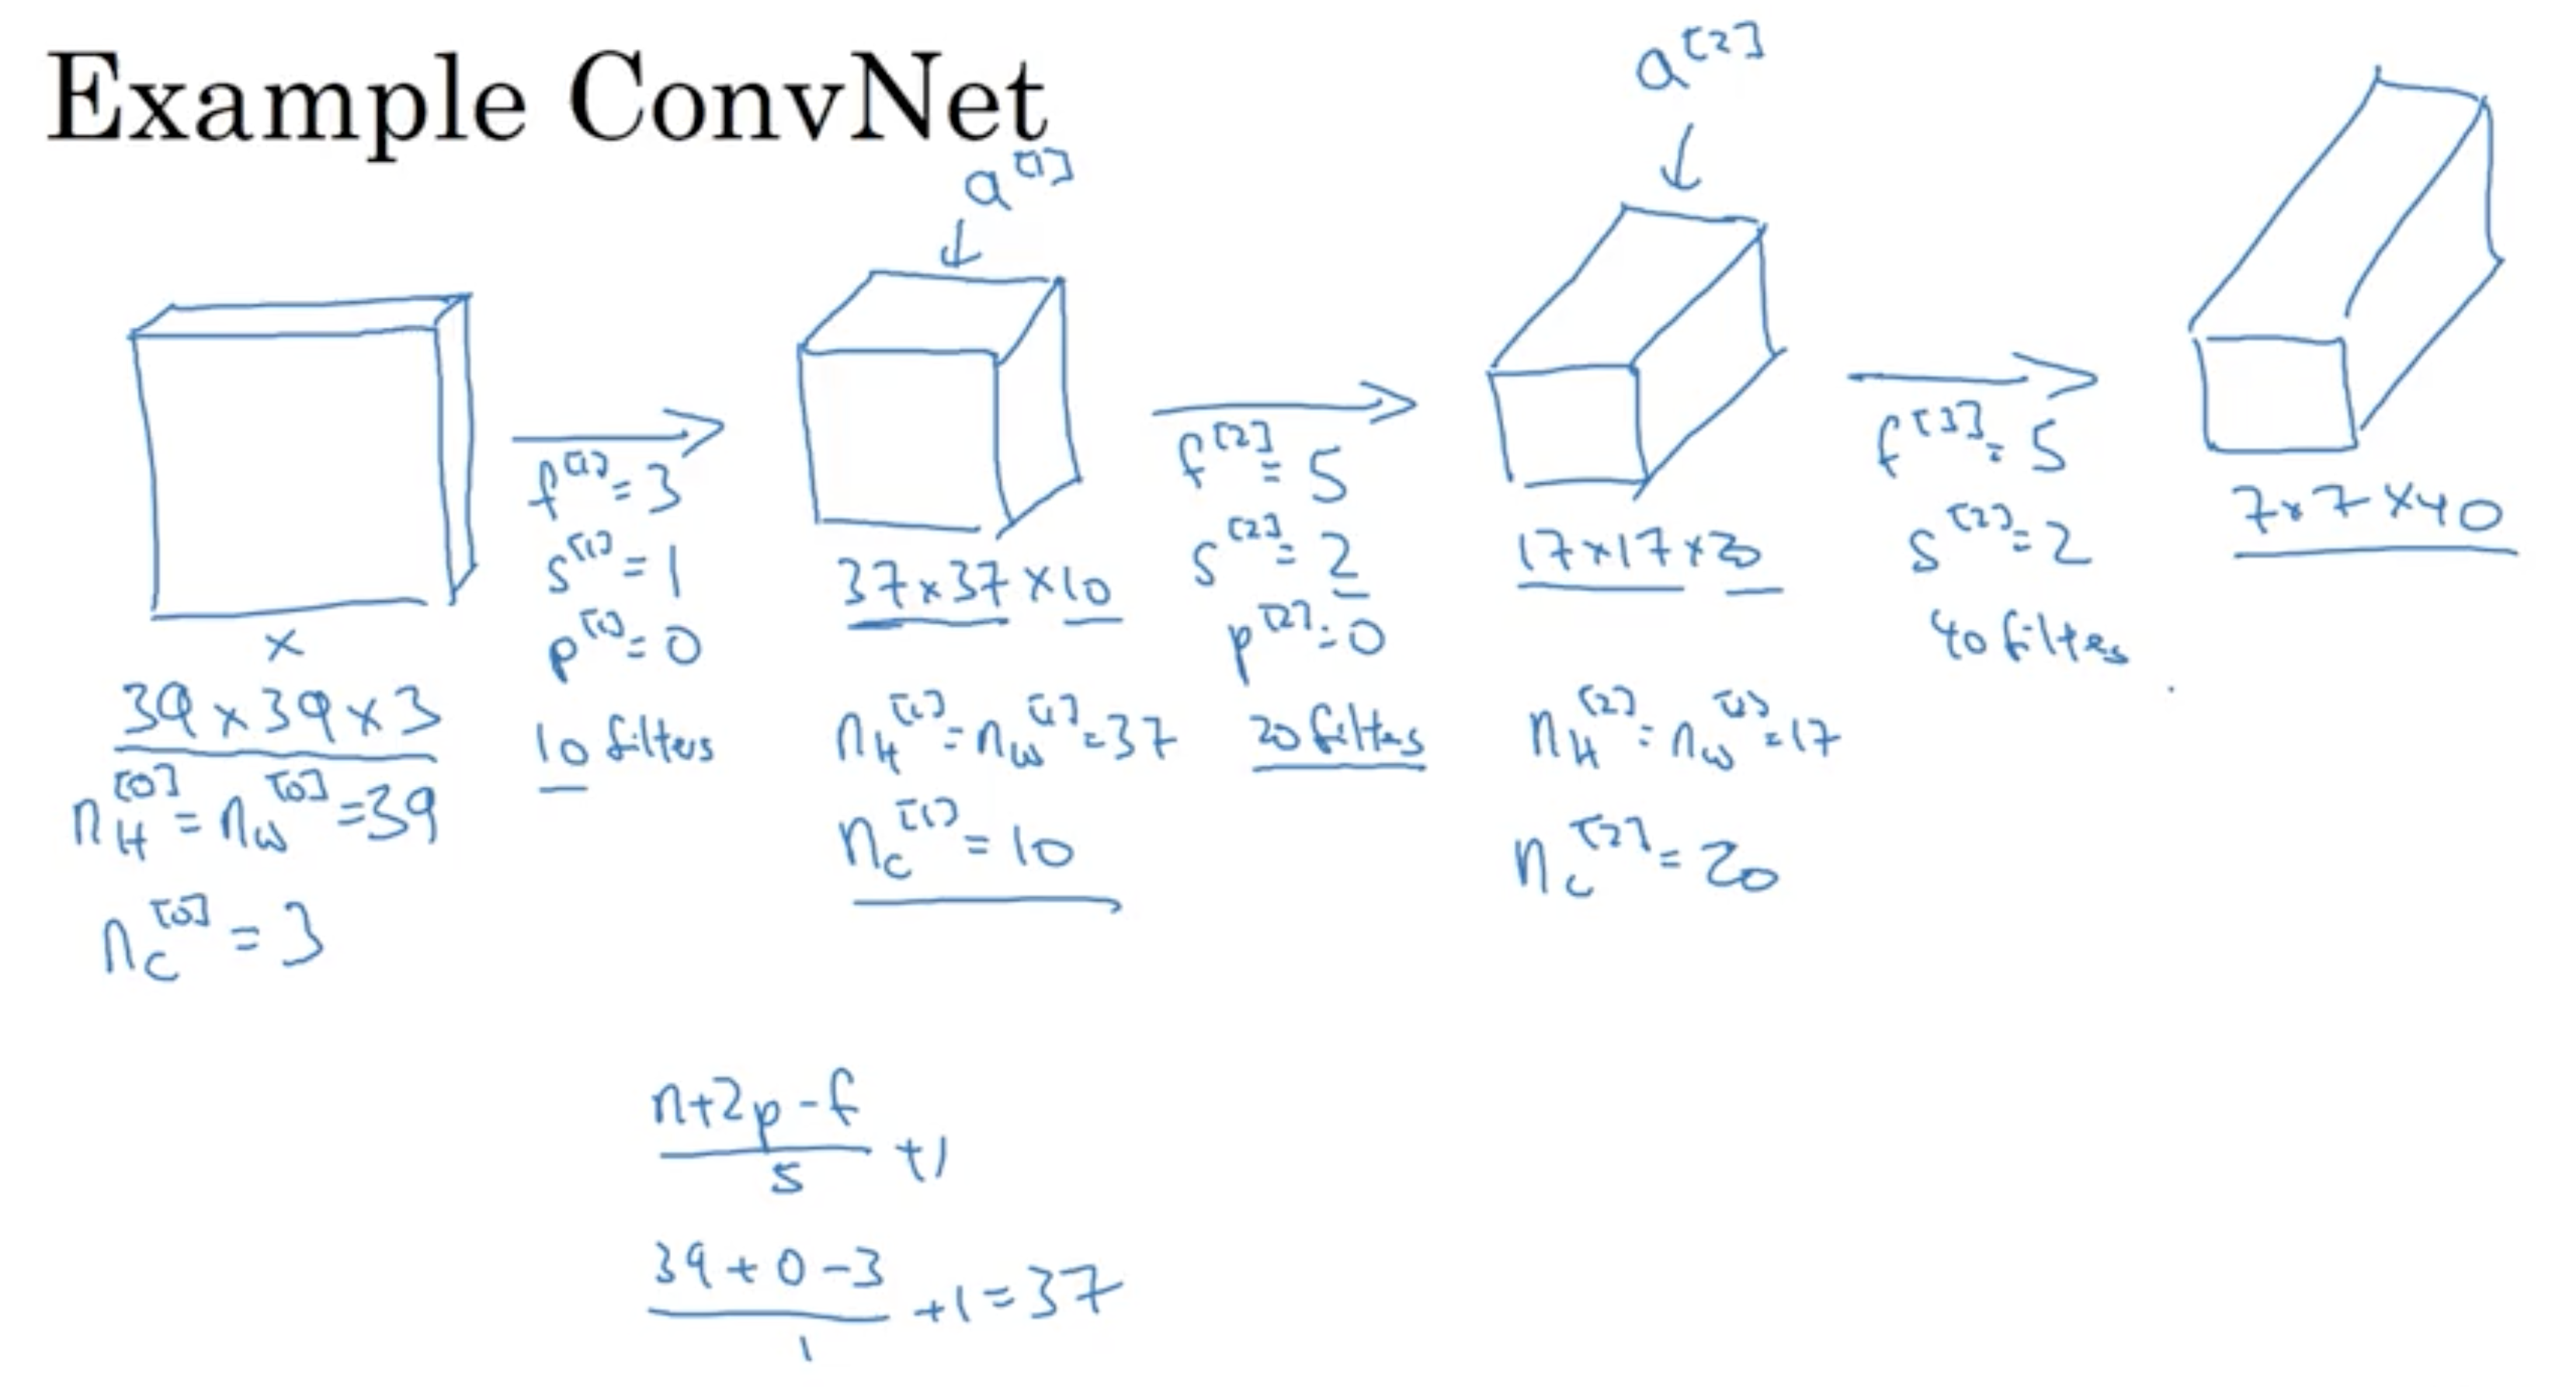 Example ConvNet
a^[1]
a^[2]
x
39 x 39 x 3
n_H^[0] = n_W^[0] = 39
n_C^[0] = 3
f^[1] = 3
s^[1] = 1
p^[1] = 0
10 filters
37 x 37 x 10
n_H^[1] = n_W^[1] = 37
n_C^[1] = 10
f^[2] = 5
s^[2] = 2
p^[2] = 0
20 filters
17 x 17 x 20
n_H^[2] = n_W^[2] = 17
n_C^[2] = 20
f^[3] = 5
s^[2] = 2
40 filters
7 x 7 x 40
n+2p-f
s
+1
39 + 0 - 3
1
+1 = 37